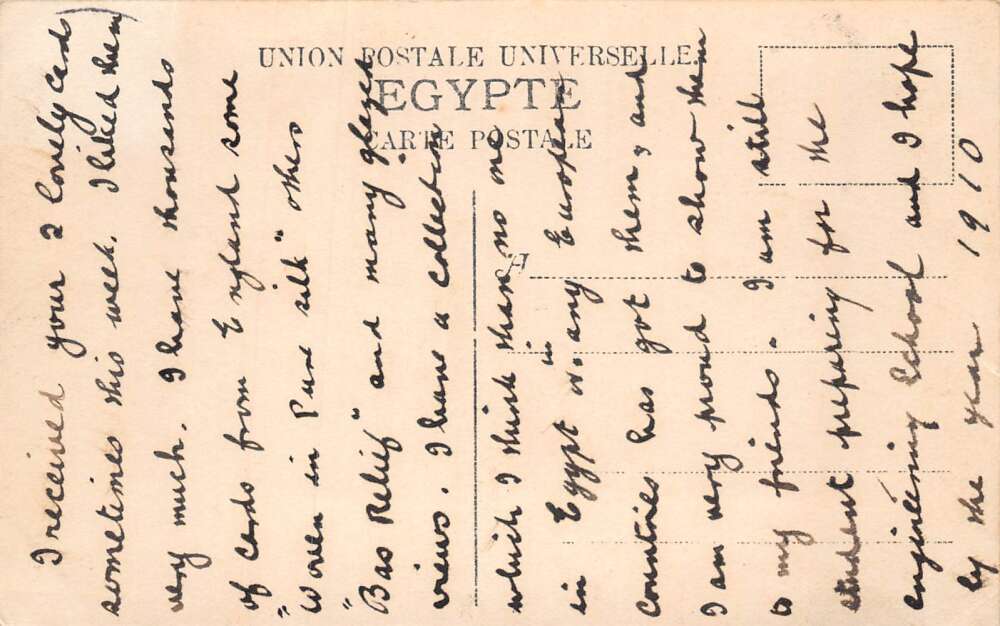 UNION POSTALE UNIVERSELLE.
EGYPTE
CARTE POSTALE
I received your 2 lovely cards
sometimes this week. I liked them
very much. I have thousands
of cards from England some
"Woven in Pure silk" others
"Bas Relief" and many glazed
views. I have a collection
which I think than no one
in Egypt or in any European
countries has got them, and
I am very proud to show them
to my friends. I am still
student preparing for the
engineering School and I hope
by the year 1910